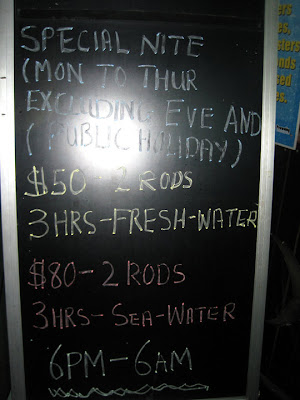 SPECIAL NITE
(MON TO THUR
EXCLUDING EVE AND
(PUBLIC HOLIDAY)
$50-2 RODS
3HRS-FRESH-WATER
$80-2 RODS
3HRS-SEA-WATER
6PM-6AM